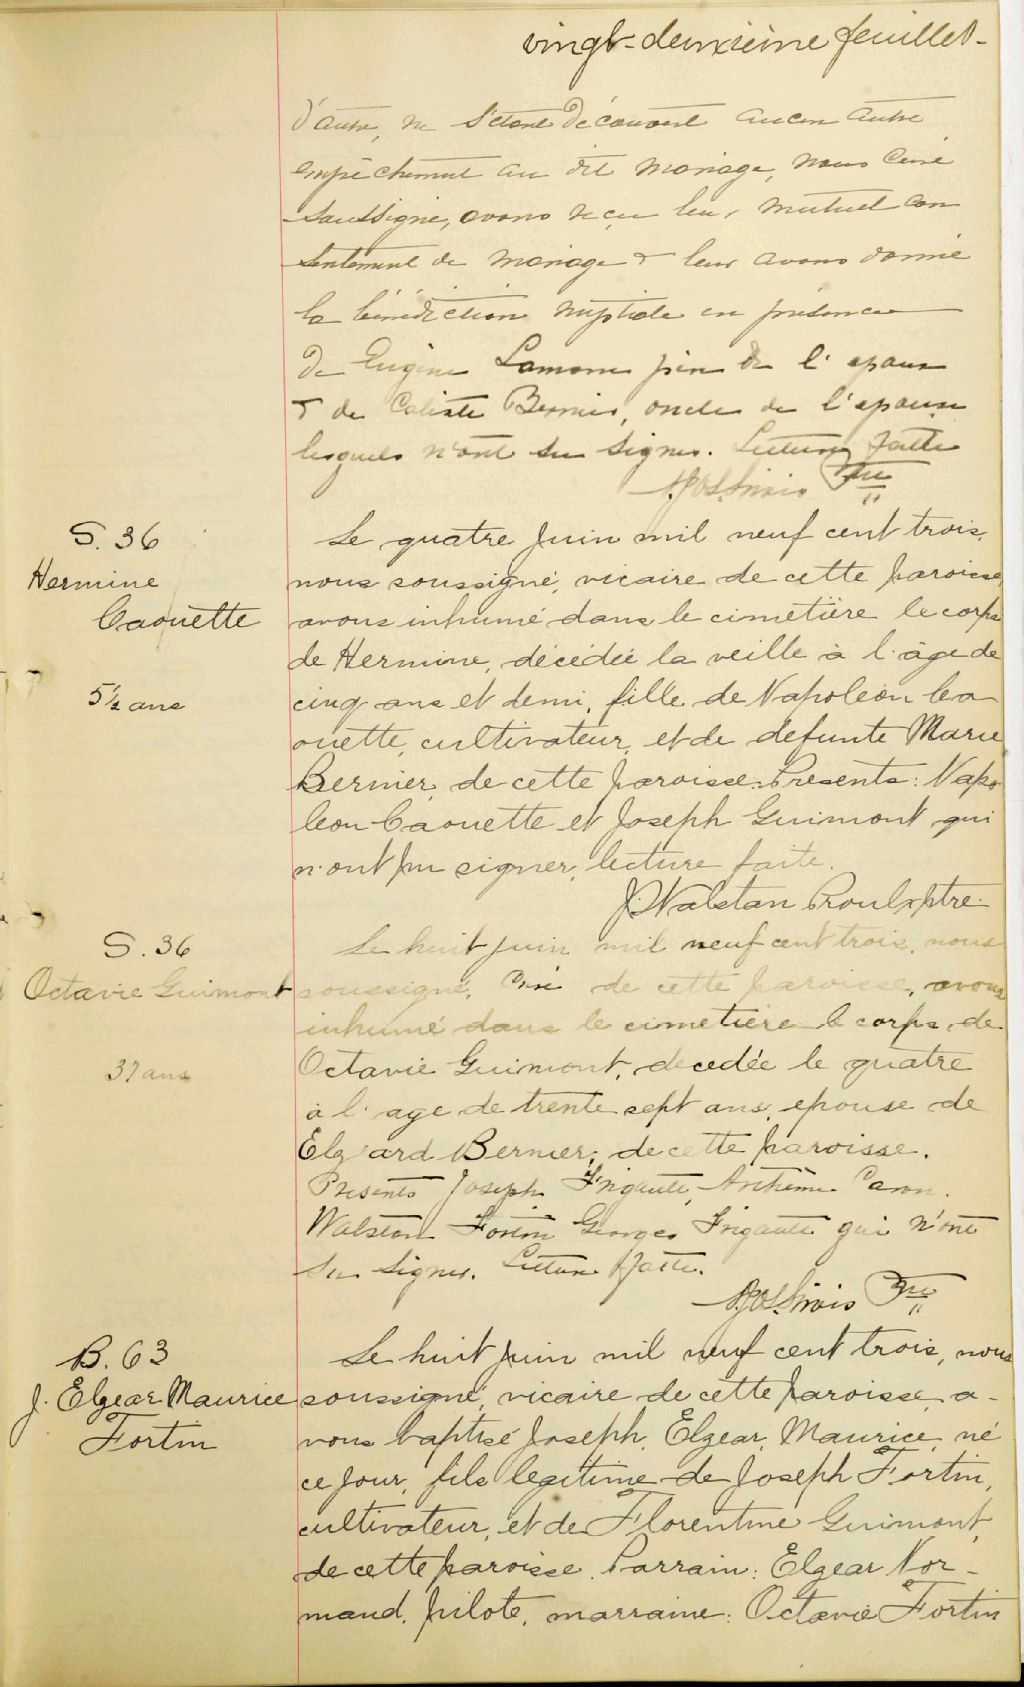 vingt-deuxième feuillet-
d'autre, ne s'étant découvert aucun autre
empêchement au dit mariage, nous Curé
soussigné, avons reçu leur mutuel con
sentement de mariage & leur avons donné
la bénédiction nuptiale en présence
de Eugène père de l'epoux
& de Caliste Bernier, oncle de l'epouse
lesquels n'ont su signer. Lecture faite
Ptre
S. 36
Hermine
Caouette
5½ ans
Le quatre Juin mil neuf cent trois,
nous soussigné, vicaire de cette paroisse,
avons inhumé dans le cimetière le corps
de Hermine, décédée la veille à l'âge de
cinq ans et demi, fille de Napoléon Ca
ouette, cultivateur, et de defunte Marie
Bernier, de cette paroisse. Presents: Napo
leon Caouette et Joseph Guimont qui
n'ont pu signer, lecture faite.
J. Walstan Proulx ptre.
S. 36
Octavie Guimont
37 ans
Le huit juin mil neuf cent trois, nous
soussigné, Curé de cette paroisse, avons
inhumé dans le cimetière le corps de
Octavie Guimont, decedée le quatre
à l'age de trente sept ans, epouse de
Elzéard Bernier, de cette paroisse.
Présents Joseph Frigault, Anthime Caron.
Walstan Fortin Georges Frigault qui n'ont
su signer. Lecture faite.
Ptre
B. 63
J. Elgear Maurice
Fortin
Le huit Juin mil neuf cent trois, nous
soussigné, vicaire de cette paroisse, a-
vons baptisé Joseph, Elgear, Maurice, né
ce jour, fils legitime de Joseph Fortin,
cultivateur, et de Florentine Guimont,
de cette paroisse. Parrain: Elgear Nor-
mand, pilote, marraine: Octavie Fortin